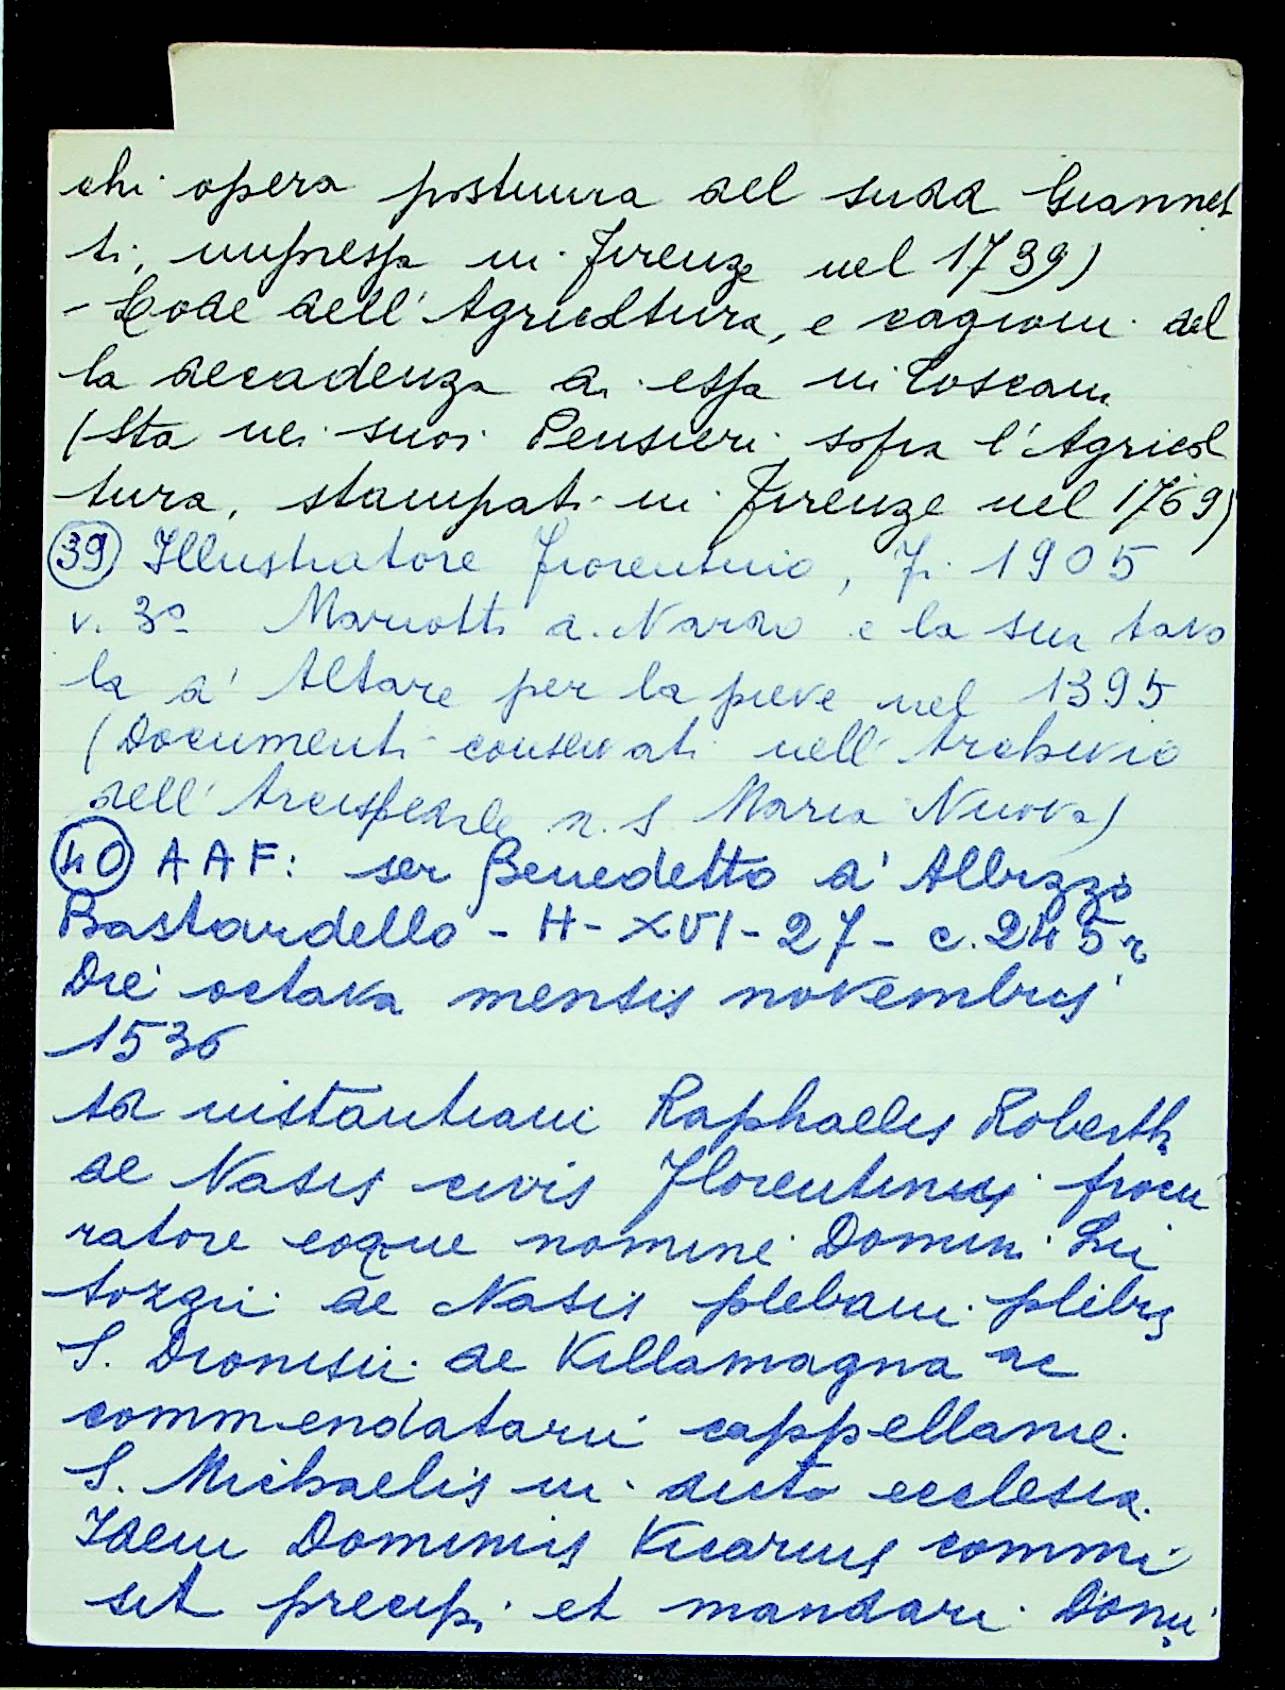 chi opera postuma del sudd Giannet
ti, impressa in Firenze nel 1739)
- Lode dell'Agricoltura, e cagioni del
la decadenza di essa in Toscana
(Sta nei suoi Pensieri sopra l'Agricol
tura, stampati in Firenze nel 1769)
(39) Illustratore Fiorentino, Fi. 1905
v. 3º Mariotto di Nardo e la sua tavo
la d'Altare per la pieve nel 1395
(Documenti conservati nell'Archivio
dell'Arcispedale di S Maria Nuova)
(40) AAF: ser Benedetto d'Albizzo
Bastardello - H - XVI - 27 - c. 245r
Die octava mensis novembris
1536
Ad instantiam Raphaelis Roberti
de Nasis civis Florentinus procu
ratore eoque nomine Domini Lu
tozgii de Nasis plebani plebis
S. Dionisii de Villamagna ac
commendatarii cappellanie
S. Michaelis in dicta ecclesia.
Idem Dominus Vicarius commi
sit precipi et mandari Domi